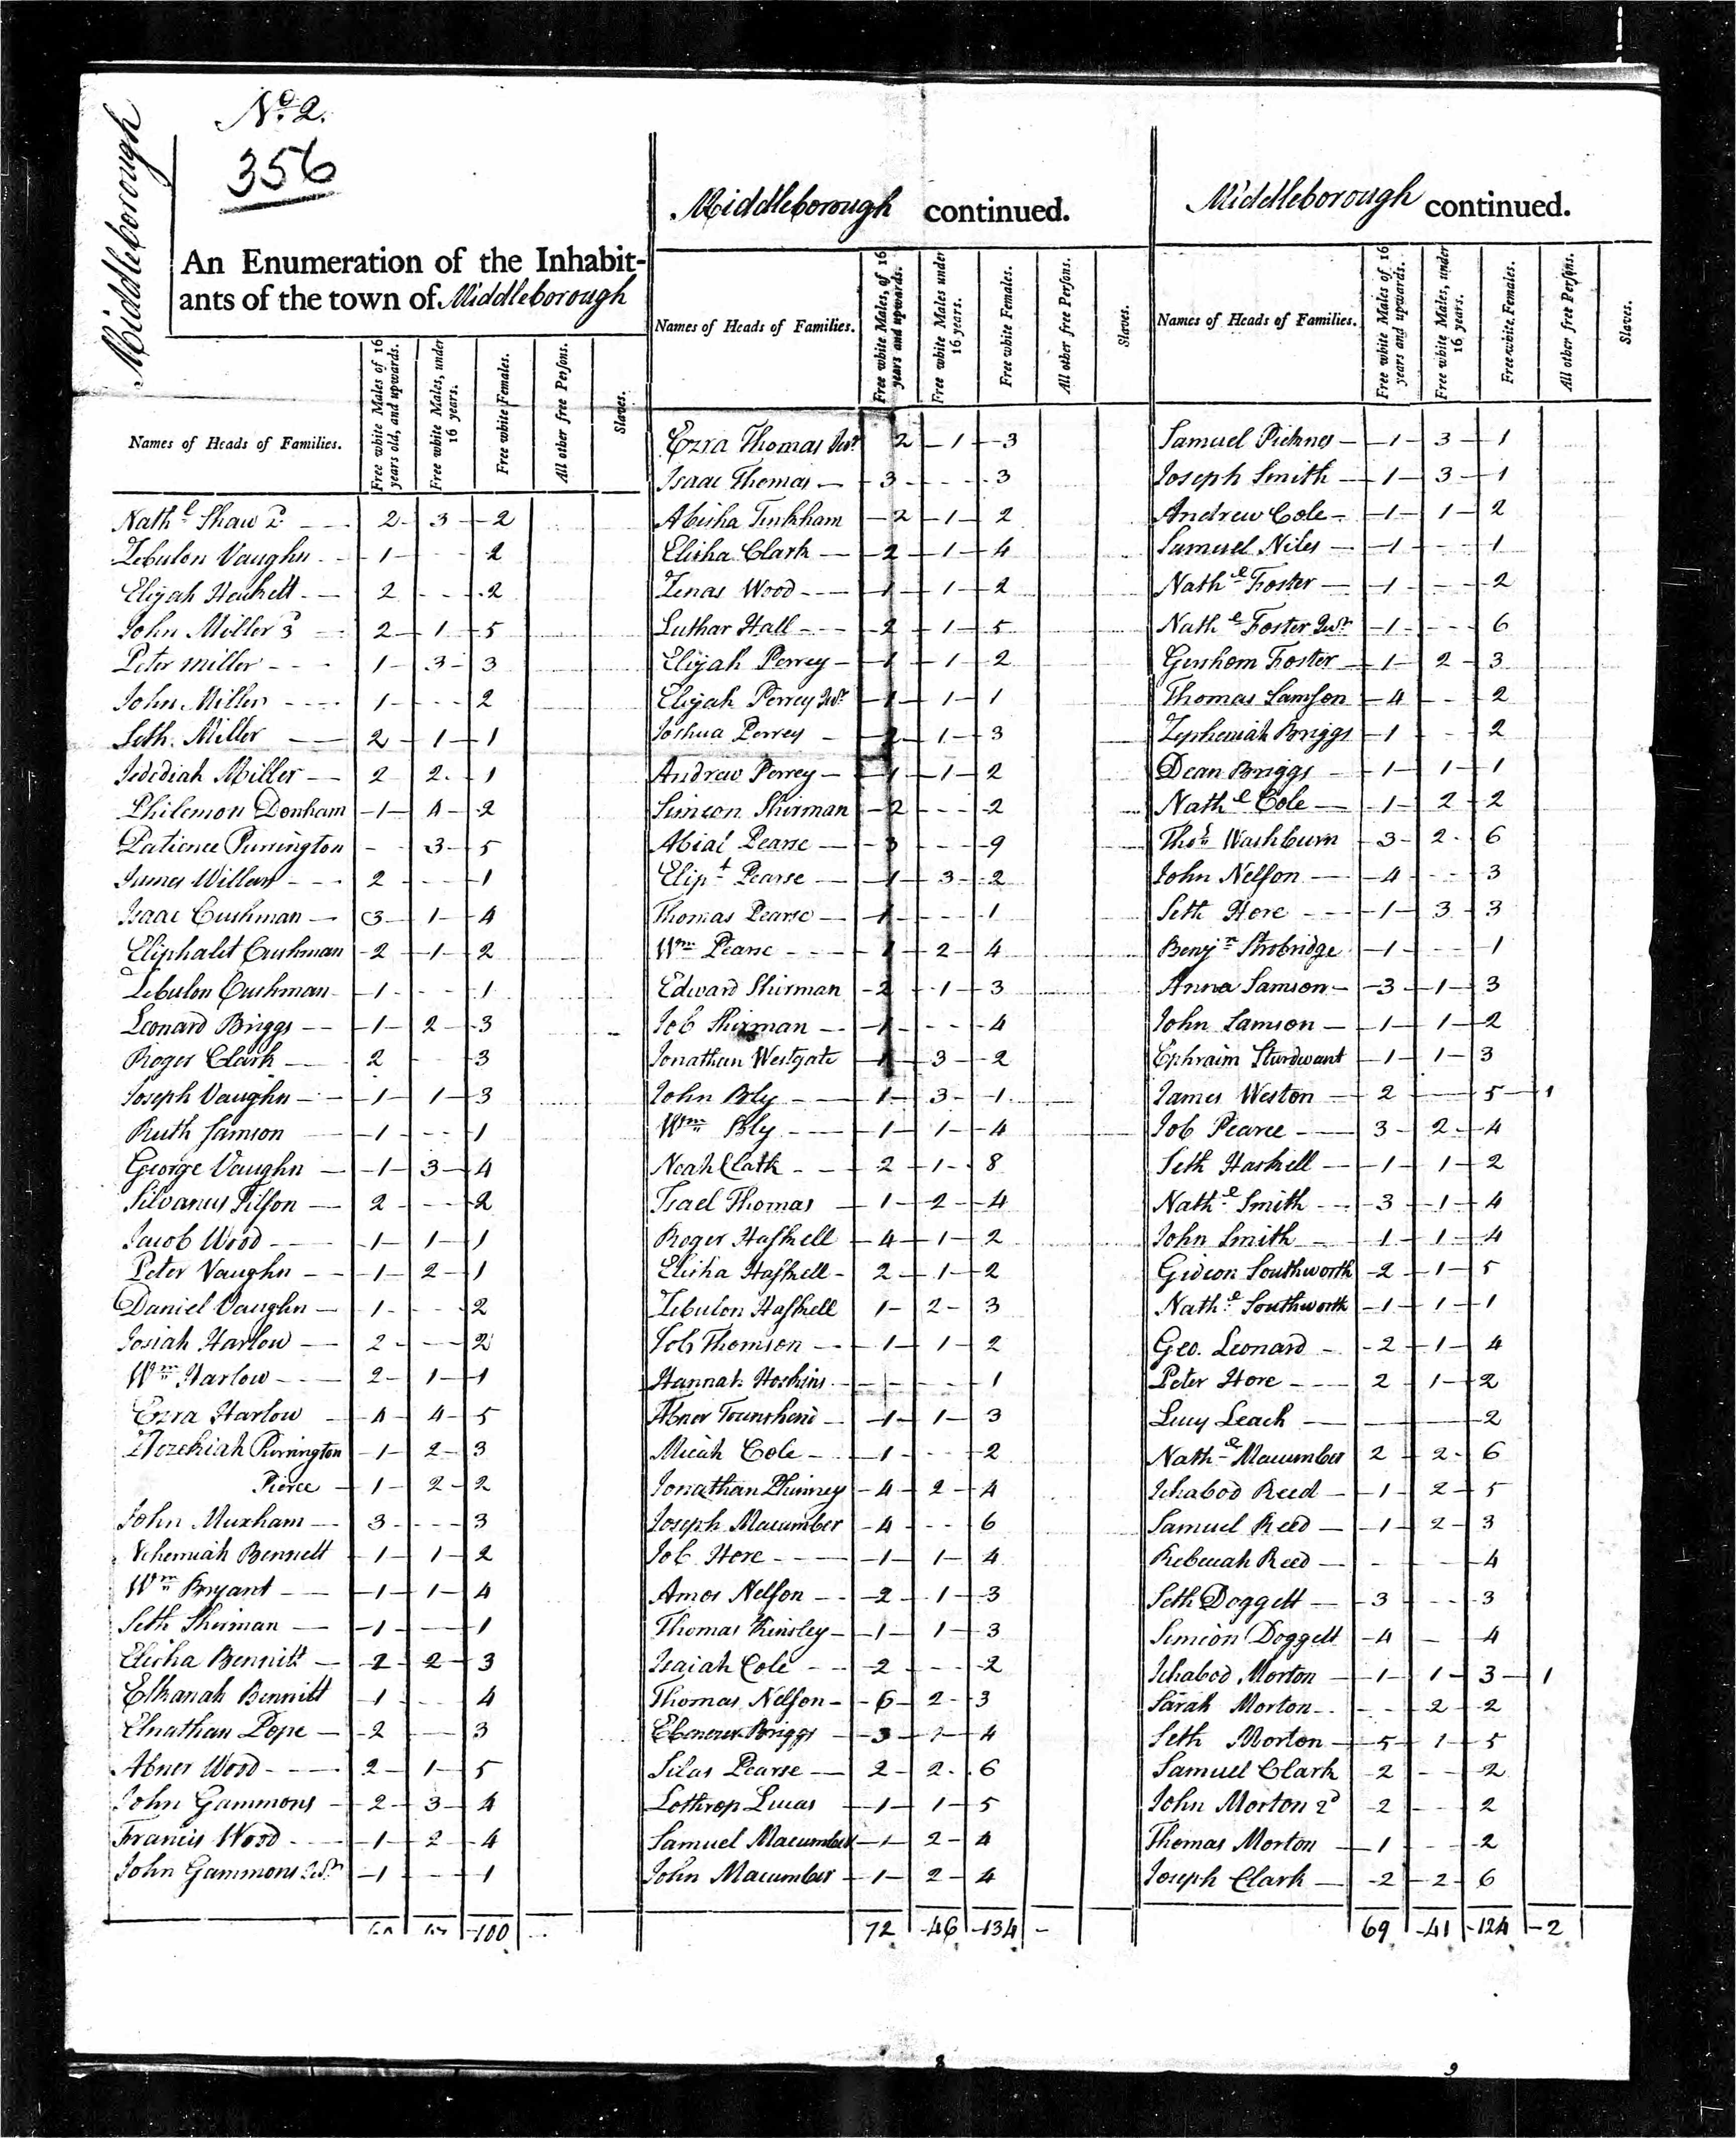 Middleborough
No. 2.
356
An Enumeration of the Inhabit-
ants of the town of Middleborough
Names of Heads of Families.
Free white Males of 16 years old, and upwards.
Free white Males, under 16 years.
Free white Females.
All other free Persons.
Slaves.
Nathl Shaw 2d 2 3 2
Zebulon Vaughn 1 2
Elijah Hackett 2 2
John Miller 3d 2 1 5
Peter Miller 1 3 3
John Miller 1 2
Seth Miller 2 1 1
Jedediah Miller 2 2 1
Philemon Donham 1 4 2
Patience Purrington 3 5
James Willson 2 1
Isaac Cushman 3 1 4
Eliphalet Cushman 2 1 2
Zebulon Cushman 1 1
Leonard Briggs 1 2 3
Roger Clark 2 3
Joseph Vaughn 1 1 3
Ruth Samson 1 1
George Vaughn 1 3 4
Silvanus Tilson 2 2
Jacob Wood 1 1 1
Peter Vaughn 1 2 1
Daniel Vaughn 1 2
Josiah Harlow 2 2
Wm Harlow 2 1 1
Ezra Harlow 4 4 5
Hezekiah Purrington 1 2 3
Pierce 1 2 2
John Muxham 3 3
Nehemiah Bennett 1 1 2
Wm Bryant 1 1 4
Seth Shirman 1 1
Elisha Bennitt 2 2 3
Elkanah Bennitt 1 4
Elnathan Pope 2 3
Abner Wood 2 1 5
John Gammons 2 3 4
Francis Wood 1 2 4
John Gammons Junr 1 1
100
Middleborough continued.
Names of Heads of Families.
Free white Males, of 16 years and upwards.
Free white Males under 16 years.
Free white Females.
All other free Persons.
Slaves.
Ezra Thomas Junr 2 1 3
Isaac Thomas 3 3
Abisha Tinkham 2 1 2
Elisha Clark 2 1 4
Zenas Wood 1 1 2
Luthar Hall 2 1 5
Elijah Perrey 1 1 2
Elijah Perrey Junr 1 1 1
Joshua Perrey 2 1 3
Andrew Perrey 1 1 2
Simeon Shirman 2 2
Abial Pearse 3 9
Elipt Pearse 1 3 2
Thomas Pearse 1 1
Wm Pearse 1 2 4
Edward Shirman 2 1 3
Job Shirman 1 4
Jonathan Westgate 1 3 2
John Bly 1 3 1
Wm Bly 1 1 4
Noah Clark 2 1 8
Israel Thomas 1 2 4
Roger Haskell 4 1 2
Elisha Haskell 2 1 2
Zebulon Haskell 1 2 3
Job Thomson 1 1 2
Hannah Hoskins 1
Abner Townshend 1 1 3
Micah Cole 1 2
Jonathan Phinney 4 2 4
Joseph Macumber 4 6
Job Hore 1 1 4
Amos Nelson 2 1 3
Thomas Kinsley 1 1 3
Isaiah Cole 2 2
Thomas Nelson 6 2 3
Ebenezer Briggs 3 1 4
Silas Pearse 2 2 6
Lothrop Lucas 1 1 5
Samuel Macumber 1 2 4
John Macumber 1 2 4
72 46 134
Middleborough continued.
Names of Heads of Families.
Free white Males of 16 years and upwards.
Free white Males, under 16 years.
Free white Females.
All other free Persons.
Slaves.
Samuel Picknes 1 3 1
Joseph Smith 1 3 1
Andrew Cole 1 1 2
Samuel Niles 1 1
Nathl Foster 1 2
Nathl Foster Junr 1 6
Gershom Foster 1 2 3
Thomas Samson 4 2
Zepheniah Briggs 1 2
Dean Briggs 1 1 1
Nathl Cole 1 2 2
Thos Washburn 3 2 6
John Nelson 4 3
Seth Hore 1 3 3
Benjn Strobridge 1 1
Anna Samson 3 1 3
John Samson 1 1 2
Ephraim Sturdevant 1 1 3
James Weston 2 5 1
Job Pearce 3 2 4
Seth Haskell 1 1 2
Nathl Smith 3 1 4
John Smith 1 1 4
Gideon Southworth 2 1 5
Nathl Southworth 1 1 1
Geo. Leonard 2 1 4
Peter Hore 2 1 2
Lucy Leach 2
Nathl Macumber 2 2 6
Ichabod Reed 1 2 5
Samuel Reed 1 2 3
Rebeccah Reed 4
Seth Doggett 3 3
Simeon Doggett 4 4
Ichabod Morton 1 1 3 1
Sarah Morton 2 2
Seth Morton 5 1 5
Samuel Clark 2 2
John Morton 2d 2 2
Thomas Morton 1 2
Joseph Clark 2 2 6
69 41 124 2
8
9